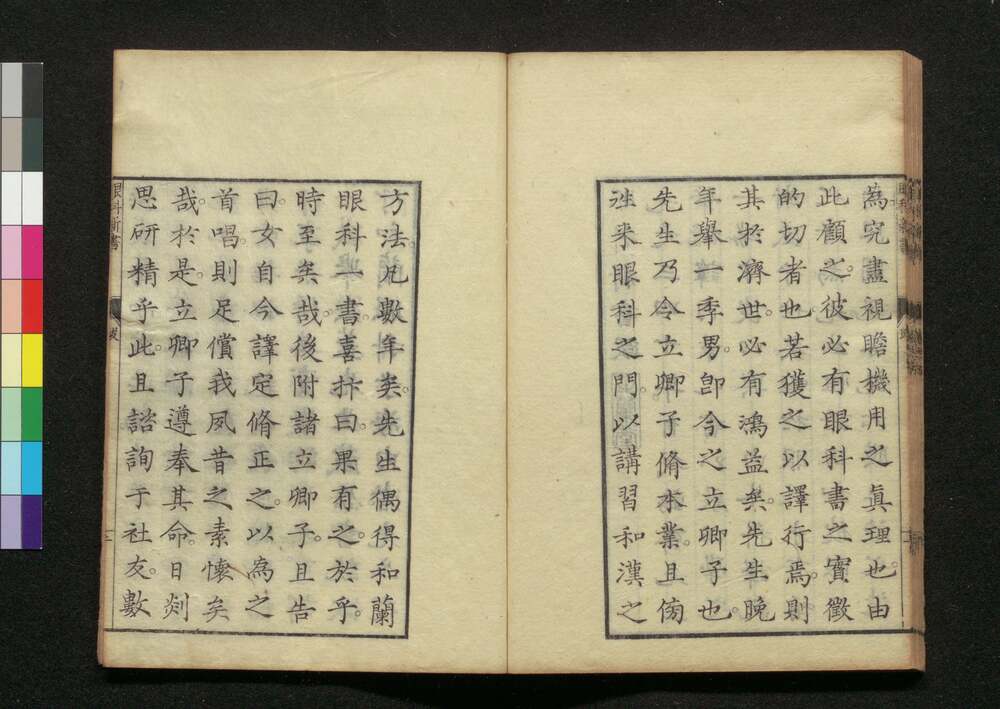 為究盡視瞻機用之眞理也由
此顧之。彼必有眼科書之實徵
的切者也若獲之以譯行焉。則
其於濟世。必有鴻益矣。先生晚
年舉一季男。卽今之立卿子也。
先生乃令立卿子脩本業。且傍
徃来眼科之門。以講習和漢之
方法。凡數年矣。先生偶得和蘭
眼科一書。喜抃曰。果有之。於乎。
時至矣哉。後附諸立卿子。且告
曰。女自今譯定脩正之。以為之
首唱。則足償我夙昔之素懷矣
哉。於是。立卿子遵奉其命。日剡
思研精乎此。且諮詢于社友。數
眼科新書
跋
二